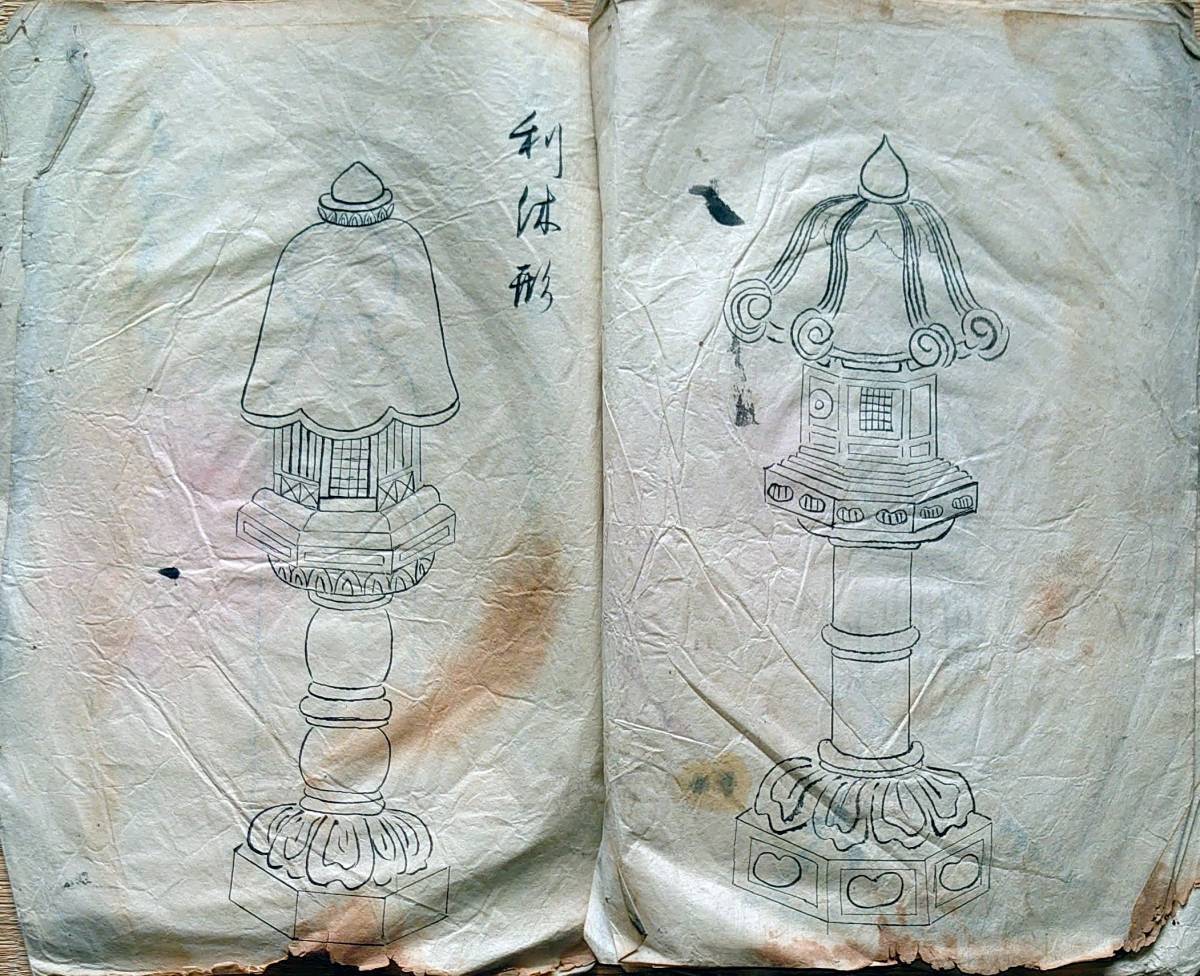 利休形